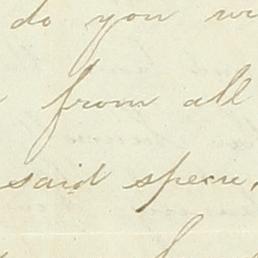 do you
from all
said specie,